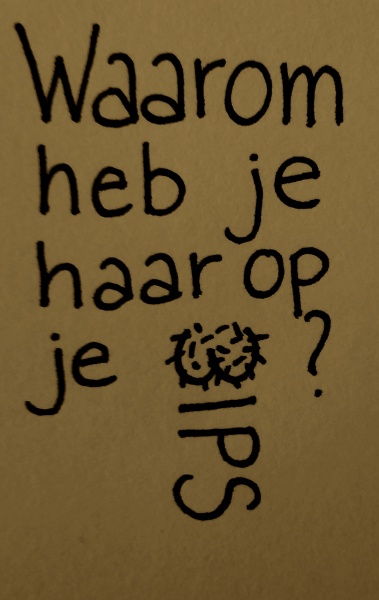 Waarom
heb je
haar op
je BIPS ?